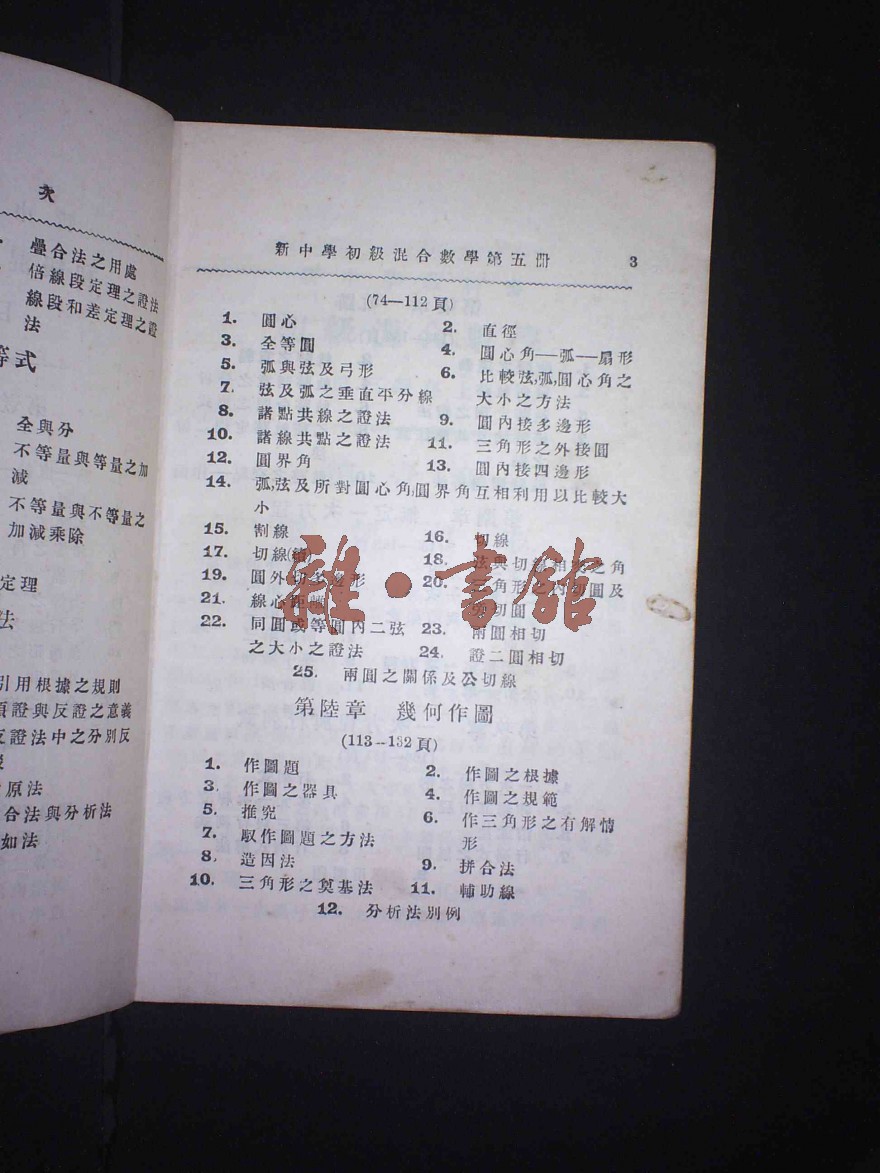 次
疊合法之用處
倍線段定理之證法
線段和差定理之證
法
等式
全與分
不等量與等量之加
減
不等量與不等量之
加減乘除
定理
法
引用根據之規則
證與反證之意義
證法中之分別反
原法
合法與分析法
如法
新中學初級混合數學第五冊 3
(74—112頁)
1. 圓心 2. 直徑
3. 全等圓 4. 圓心角—弧—扇形
5. 弧與弦及弓形 6. 比較弦,弧,圓心角之
7. 弦及弧之垂直平分線 大小之方法
8. 諸點共線之證法 9. 圓內接多邊形
10. 諸線共點之證法 11. 三角形之外接圓
12. 圓界角 13. 圓內接四邊形
14. 弧,弦及所對圓心角,圓界角互相利用以比較大
小
15. 割線 16. 切線
17. 切線(續) 18. 弦與切線相交之角
19. 圓外切多邊形 20. 三角形之內切圓及
21. 線心距 傍切圓
22. 同圓或等圓內二弦 23. 兩圓相切
之大小之證法 24. 證二圓相切
25. 兩圓之關係及公切線
第陸章 幾何作圖
(113—132頁)
1. 作圖題 2. 作圖之根據
3. 作圖之器具 4. 作圖之規範
5. 推究 6. 作三角形之有解情
7. 取作圖題之方法 形
8. 造因法 9. 拼合法
10. 三角形之奠基法 11. 輔助線
12. 分析法別例
雜·書館